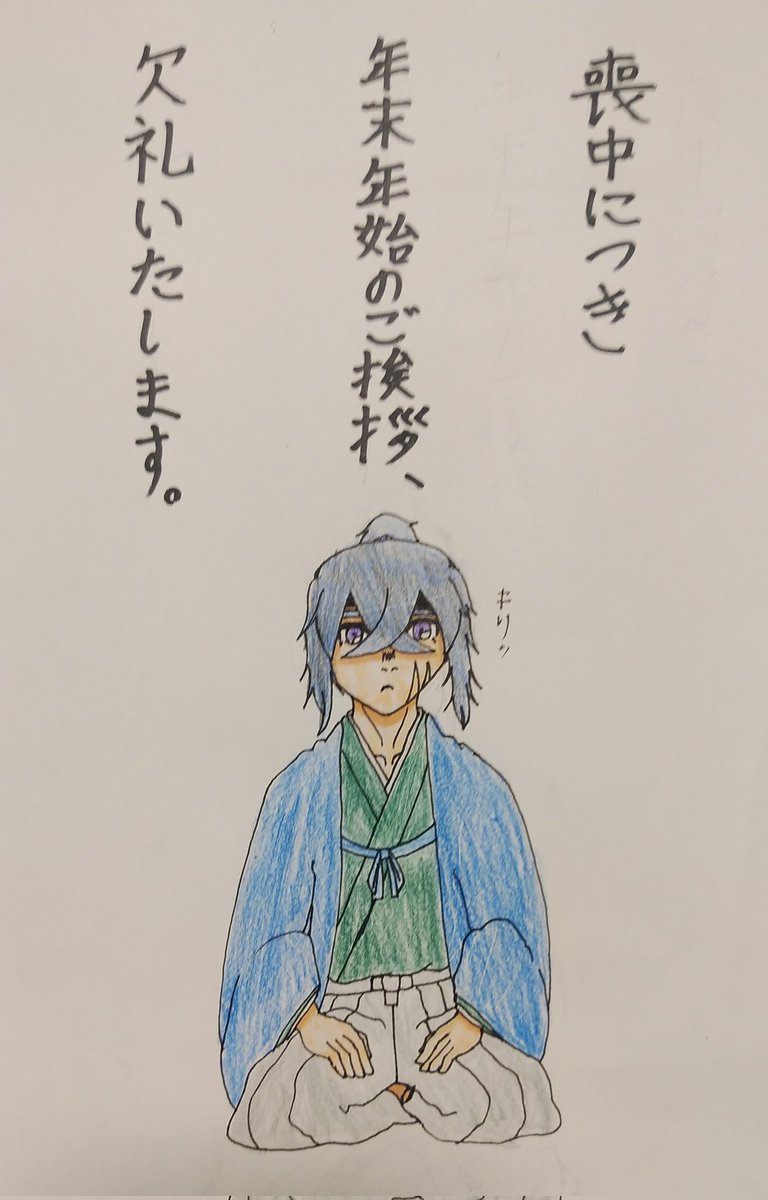 喪中につき
年末年始のご挨拶、
欠礼いたします。
キリッ